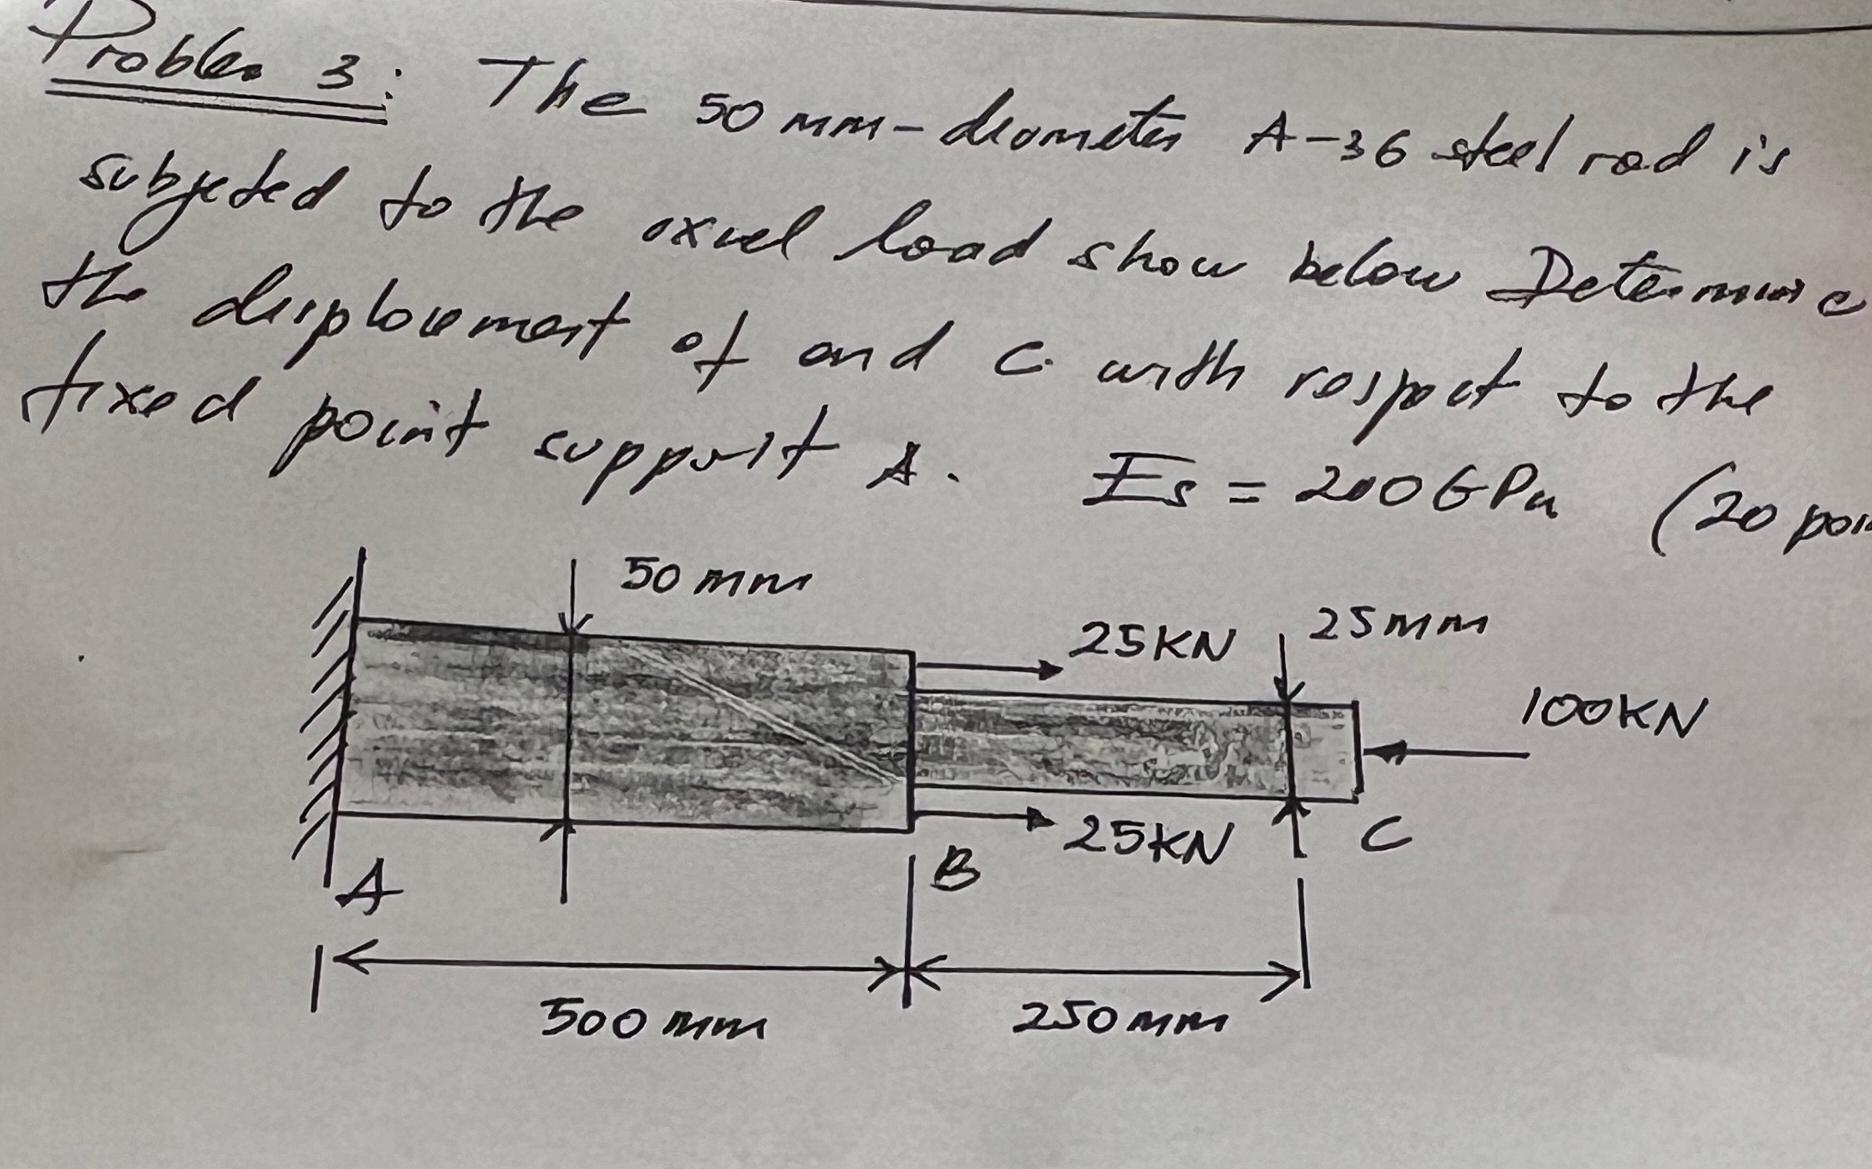 Problem 3: The 50 mm-diameter A-36 steel rod is
subjeted to the axial load show below Determine
the displacement of end C. with respect to the
fixed point support A. Es = 200GPa (20 poin
50 mm
25KN
25mm
100KN
25KN
A
B
C
500 mm
250mm